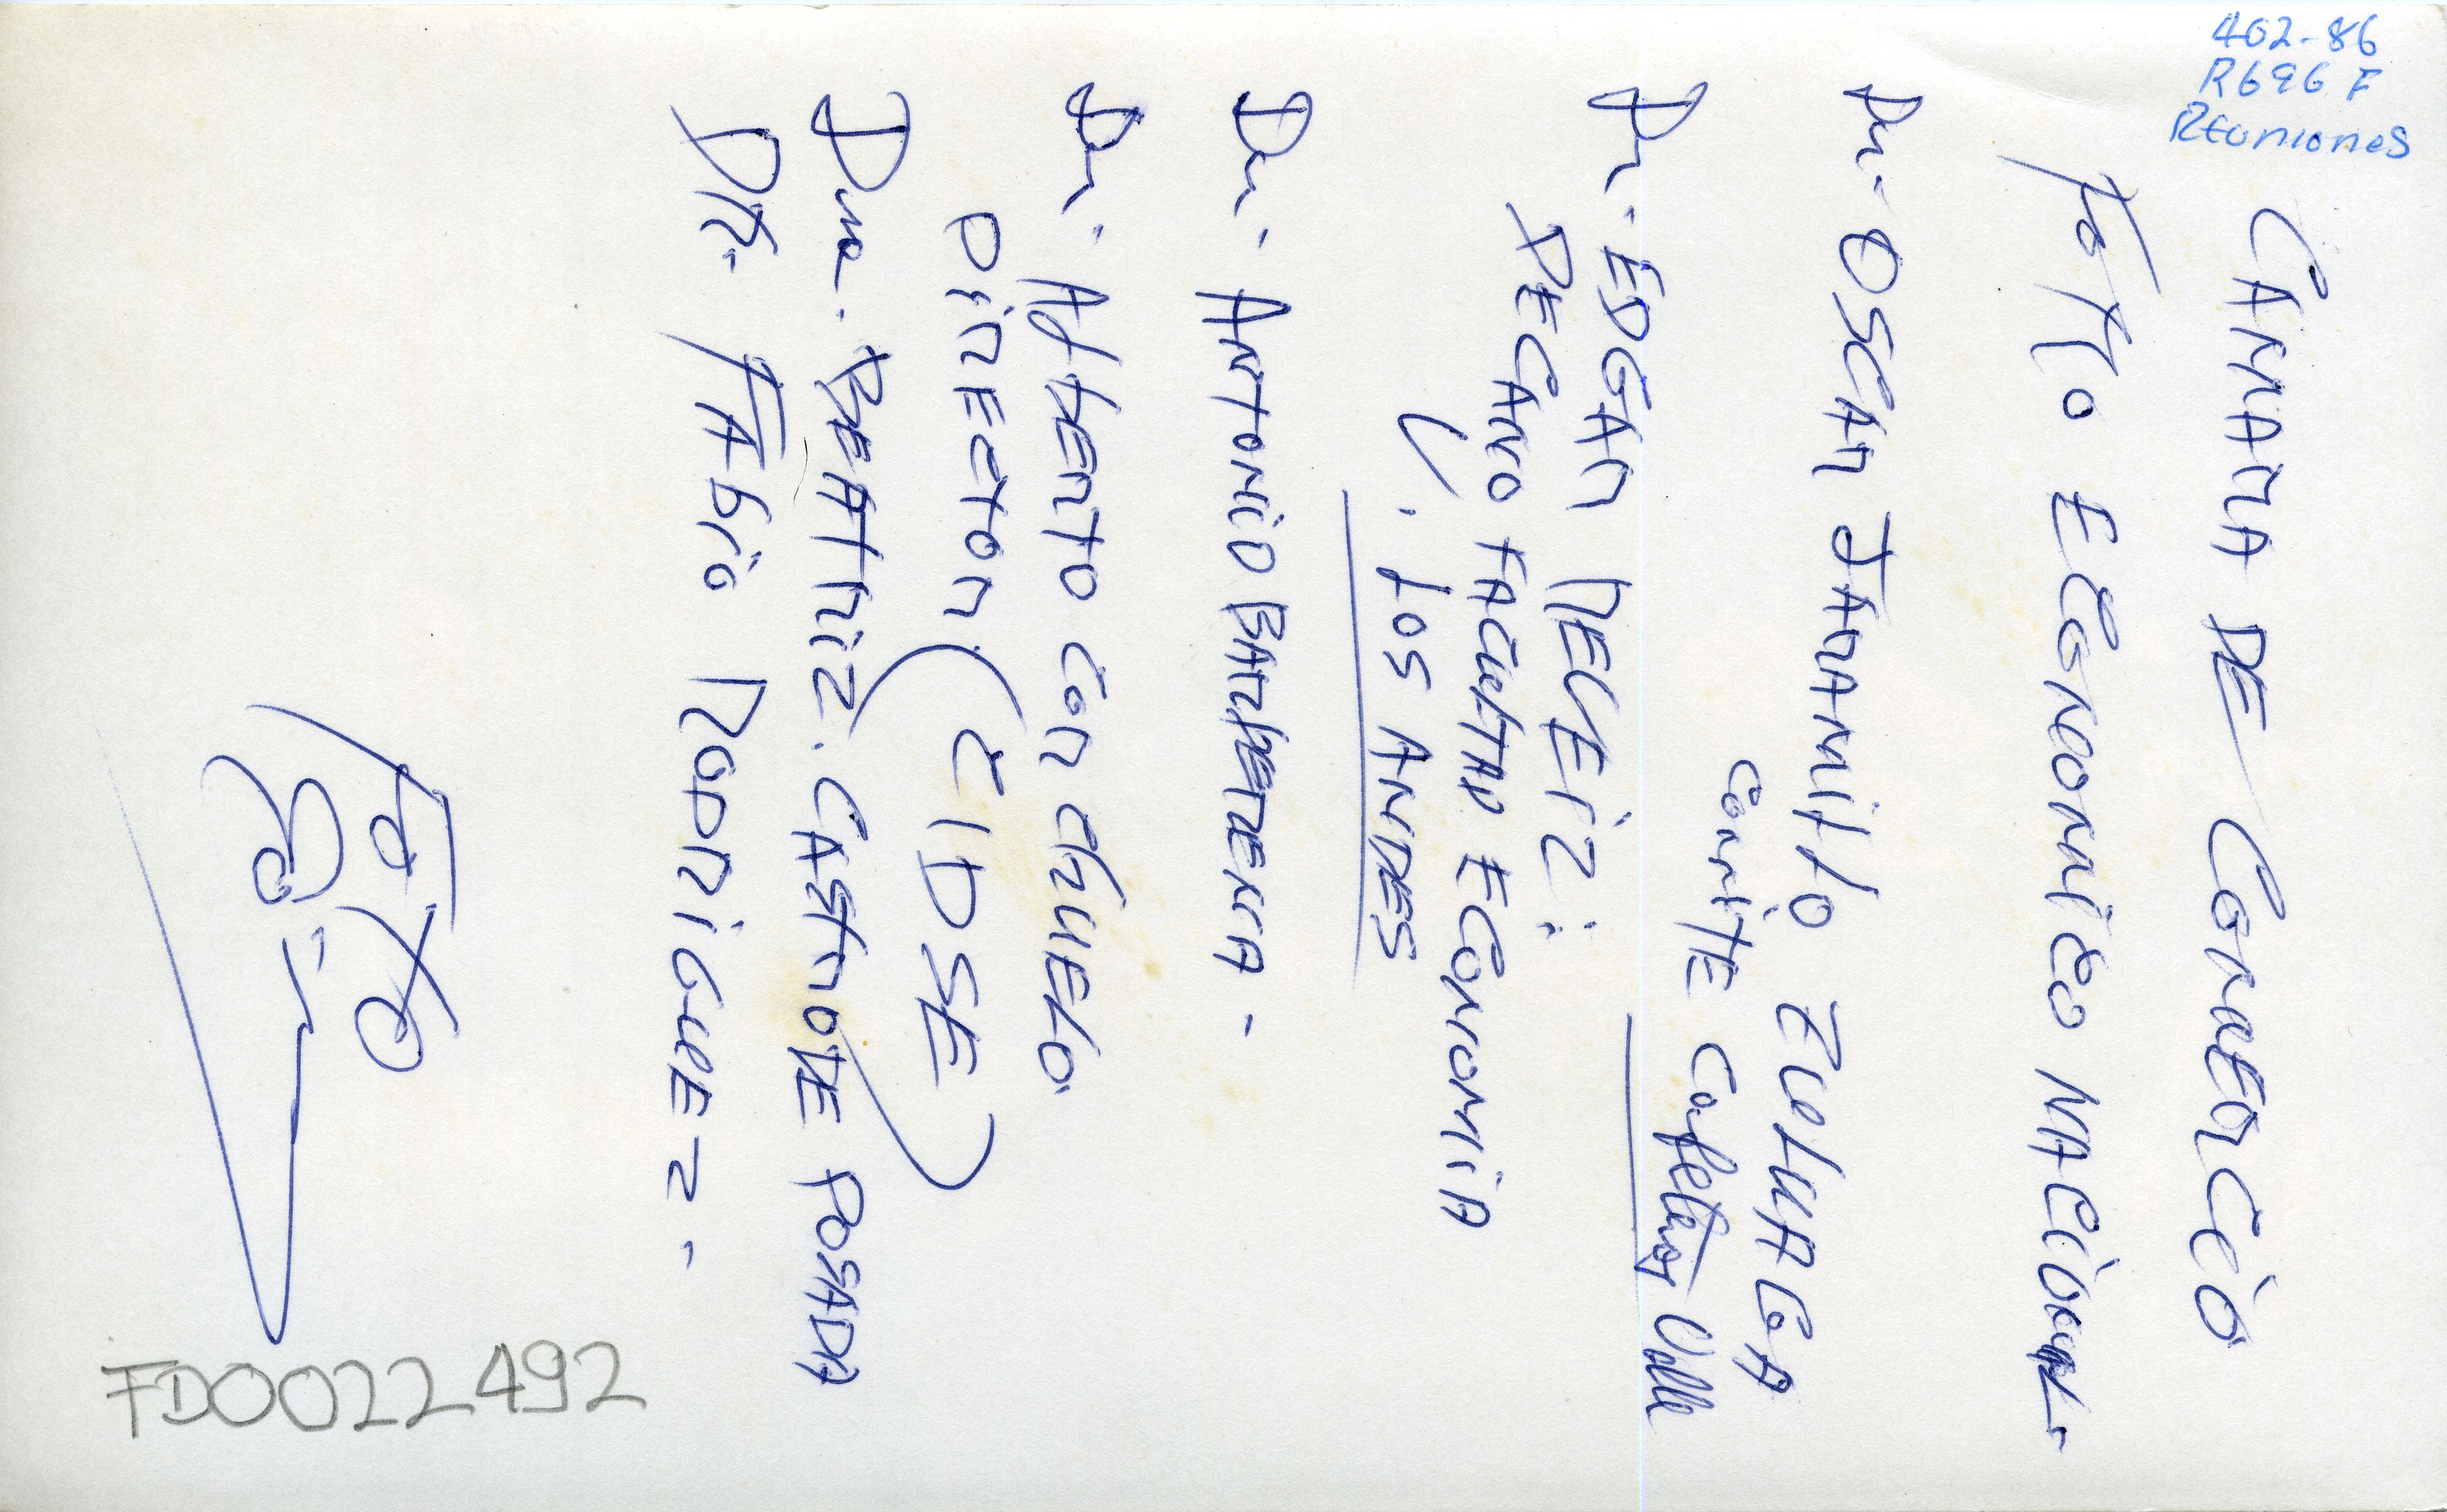 402-86
R696 F
Reuniones
CAMARA DE COMERCIO
FORO ECONOMICO NACIONAL.
Dr. OSCAR JARAMILLO ZULUAGA
COMITE Cafeteros Valle
Dr. EDGAR REVEIZ:
DECANO FACULTAD ECONOMIA
U. LOS ANDES
Dr. ANTONIO BARBERENA.
Dr. ALBERTO CORCHUELO.
DIRECTOR (CIDSE)
Dra. BEATRIZ. CASTRO DE POSADA
DR. FABIO RODRIGUEZ.
FOTO
FD0022492